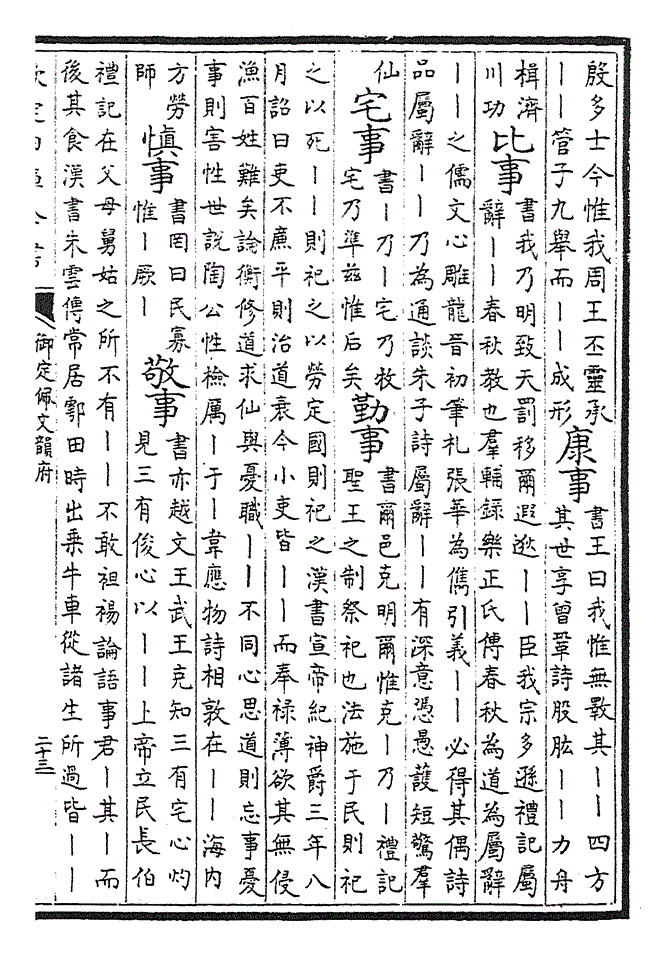 殷多士今惟我周王丕靈承
丨丨管子九舉而丨丨成形
康事
書王曰我惟無斁其丨丨四方
其世享曾鞏詩股肱丨丨力舟
楫濟
川功
比事
書我乃明致天罰移爾遐逖丨丨臣我宗多遜禮記屬
辭丨丨春秋教也羣輔録樂正氏傳春秋為道為屬辭
丨丨之儒文心雕龍晉初筆札張華為儁引義丨丨必得其偶詩
品屬辭丨丨乃為通談朱子詩屬辭丨丨有深意憑愚護短驚羣
仙
宅事
書丨乃丨宅乃牧
宅乃準兹惟后矣
勤事
書爾邑克明爾惟克丨乃丨禮記
聖王之制祭祀也法施于民則祀
之以死丨丨則祀之以勞定國則祀之漢書宣帝紀神爵三年八
月詔曰吏不廉平則治道衰今小吏皆丨丨而奉禄薄欲其無侵
漁百姓難矣論衡修道求仙與憂職丨丨不同心思道則忘事憂
事則害性世説陶公性檢厲丨于丨韋應物詩相敦在丨丨海内
方勞
師
慎事
書罔曰民寡
惟丨厥丨
敬事
書亦越文王武王克知三有宅心灼
見三有俊心以丨丨上帝立民長伯
禮記在父母舅姑之所不有丨丨不敢袒裼論語事君丨其丨而
後其食漢書朱雲傳常居鄠田時出乗牛車從諸生所過皆丨丨
欽定四庫全書
御定佩文韻府
二十三